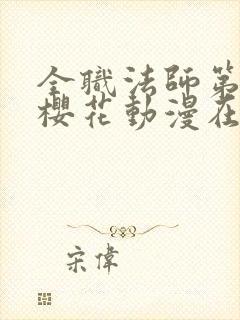 全職法師第
櫻花動漫在
宋偉